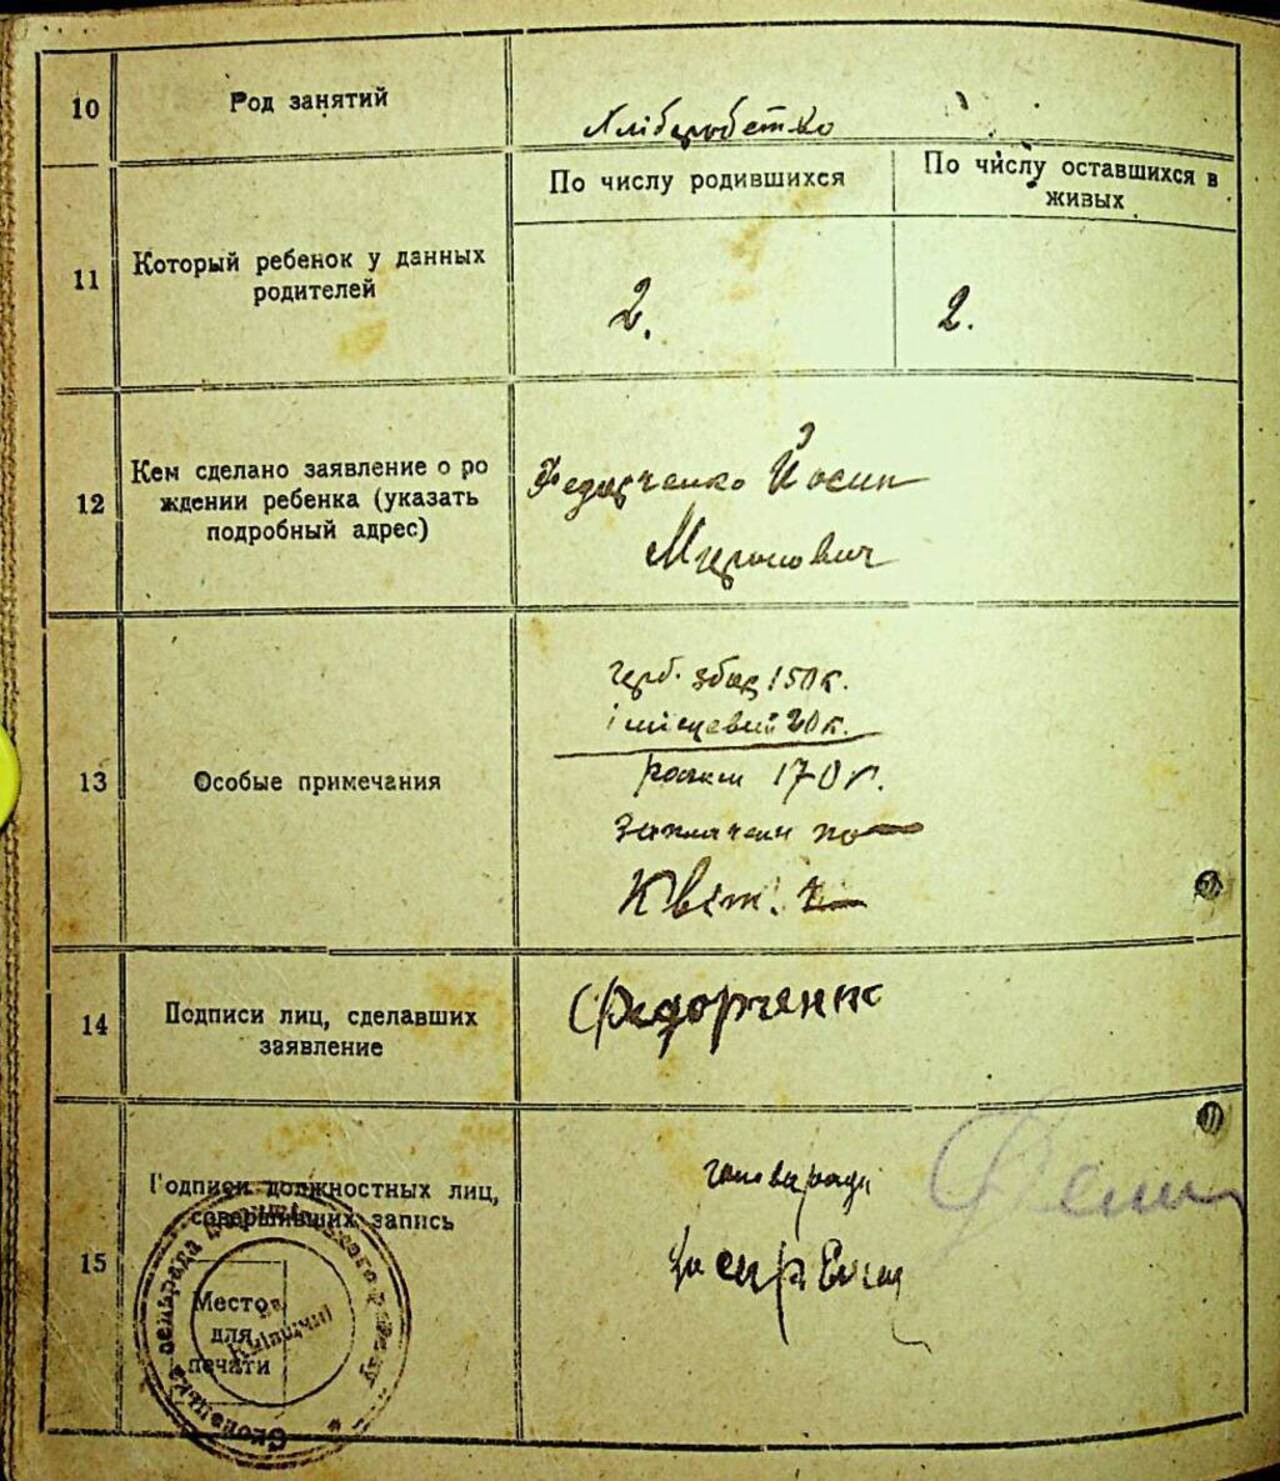 10
Род занятий
Хліборобство
11
Который ребенок у данных
родителей
По числу родившихся
По числу оставшихся в
живых
2.
2.
12
Кем сделано заявление о ро
ждении ребенка (указать
подробный адрес)
Федорченко Йосип
Миронович
13
Особые примечания
герб. збор 150 к.
і місцевий 20 к.
разом 170 к.
заплачени по
Квіт.
14
Подписи лиц, сделавших
заявление
Федорченк
15
Подписи должностных лиц,
совершивших запись
Место
для
печати
голова ради
сельрада